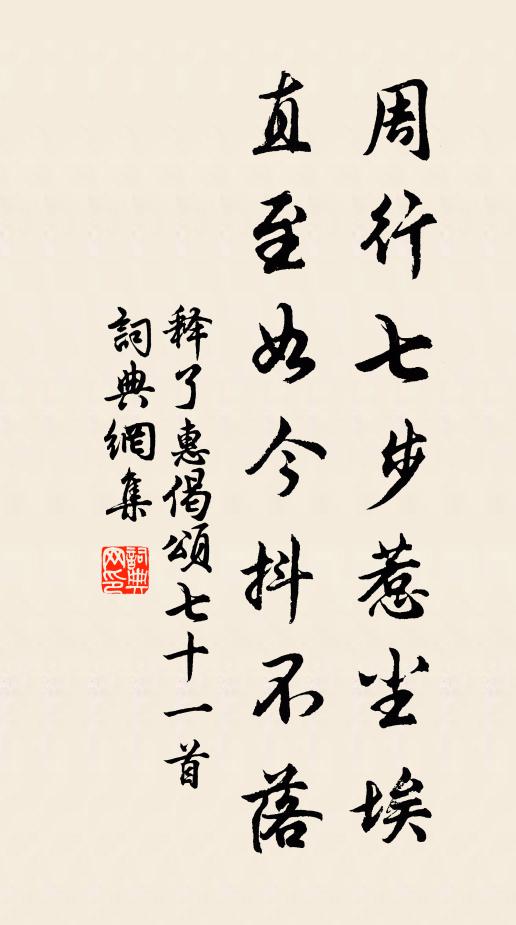 周行七步惹尘埃
直至如今抖不落
释了惠偈頌七十一首
詞典網集
詞典网印